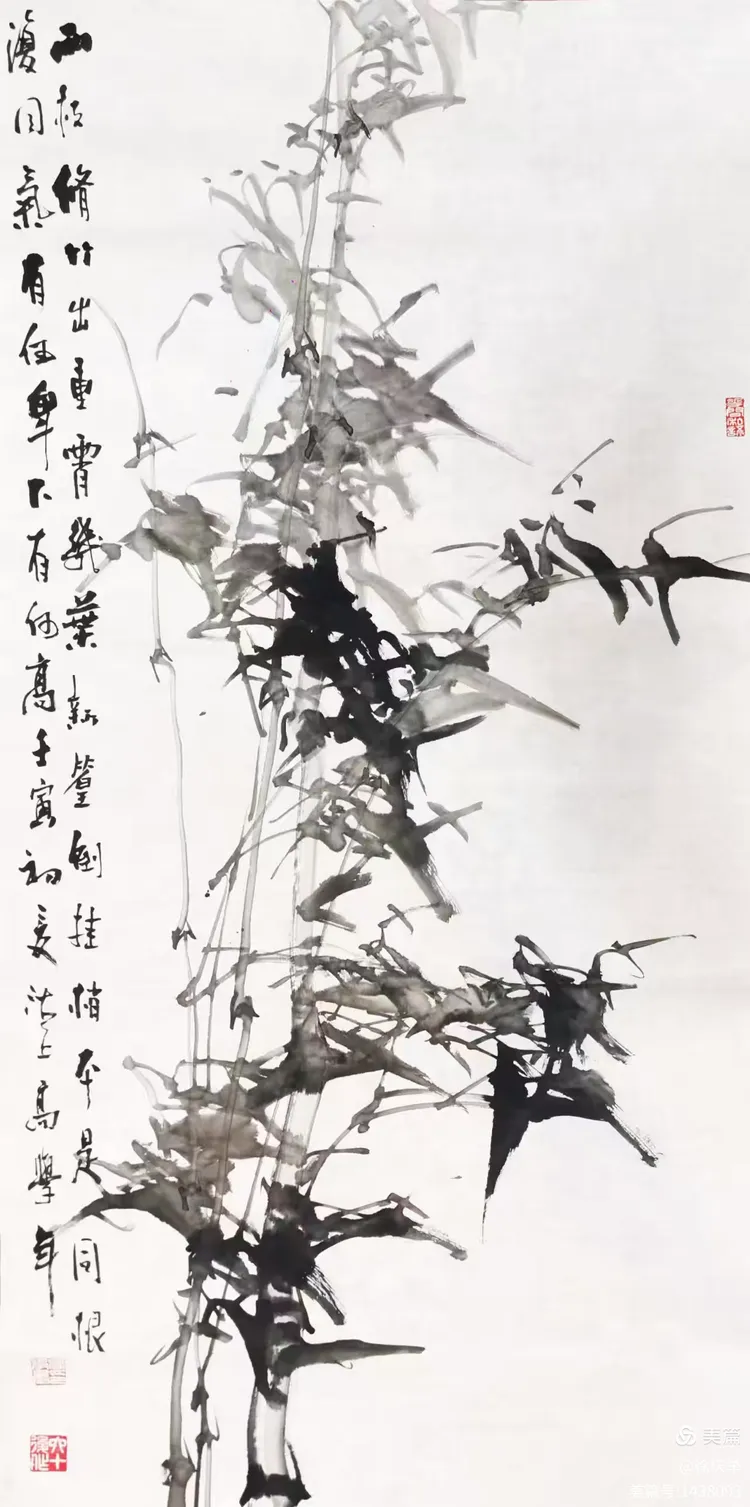 兩枝脩竹出重霄幾葉新篁倒挂梢本是同根
復同氣有何卑下有何高壬寅初夏滬上高學年
六十後作
美篇